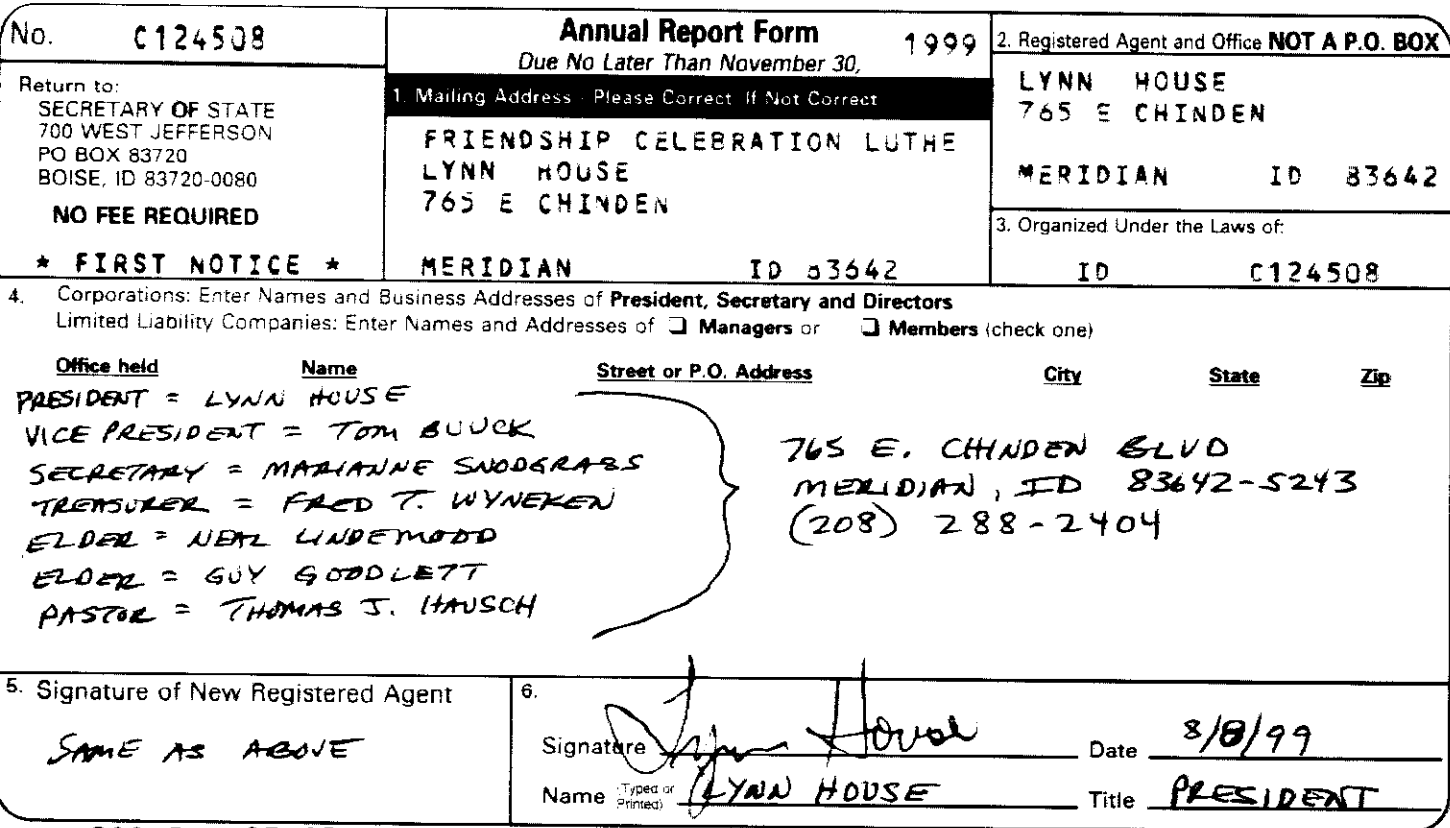 No. C124508
Return to:
SECRETARY OF STATE
700 WEST JEFFERSON
PO BOX 83720
BOISE, ID 83720-0080
NO FEE REQUIRED
* FIRST NOTICE *
Annual Report Form 1999
Due No Later Than November 30,
1. Mailing Address - Please Correct If Not Correct
FRIENDSHIP CELEBRATION LUTHE
LYNN HOUSE
765 E CHINDEN
MERIDIAN ID 83642
2. Registered Agent and Office NOT A P.O. BOX
LYNN HOUSE
765 E CHINDEN
MERIDIAN ID 83642
3. Organized Under the Laws of:
ID C124508
4. Corporations: Enter Names and Business Addresses of President, Secretary and Directors
Limited Liability Companies: Enter Names and Addresses of ❑ Managers or ❑ Members (check one)
Office held Name Street or P.O. Address City State Zip
PRESIDENT = LYNN HOUSE
VICE PRESIDENT = TOM BUUCK
SECRETARY = MARIANNE SNODGRASS
TREASURER = FRED T. WYNEKEN
ELDER = NEAL LINDEMOOD
ELDER = GUY GOODLETT
PASTOR = THOMAS J. HAUSCH
765 E. CHINDEN BLVD
MERIDIAN, ID 83642-5243
(208) 288-2404
5. Signature of New Registered Agent
SAME AS ABOVE
6.
Signature Lynn House Date 8/8/99
Name (Typed or Printed) LYNN HOUSE Title PRESIDENT